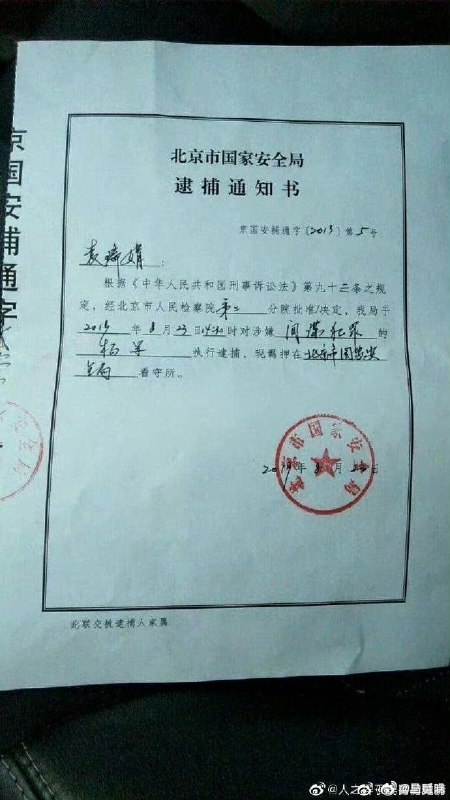 北京市国家安全局
逮捕通知书
京国安捕通字〔2019〕第5号
袁瑞娟：
根据《中华人民共和国刑事诉讼法》第九十三条之规
定，经北京市人民检察院 第二 分院批准/决定，我局于
2019 年 8 月 23 日 时对涉嫌 间谍犯罪 的
杨军 执行逮捕，现羁押在 北京市国家安
全局 看守所。
北京市国家安全局
2019年8月 日
此联交被逮捕人家属
京国安捕通字
安全局
@人之